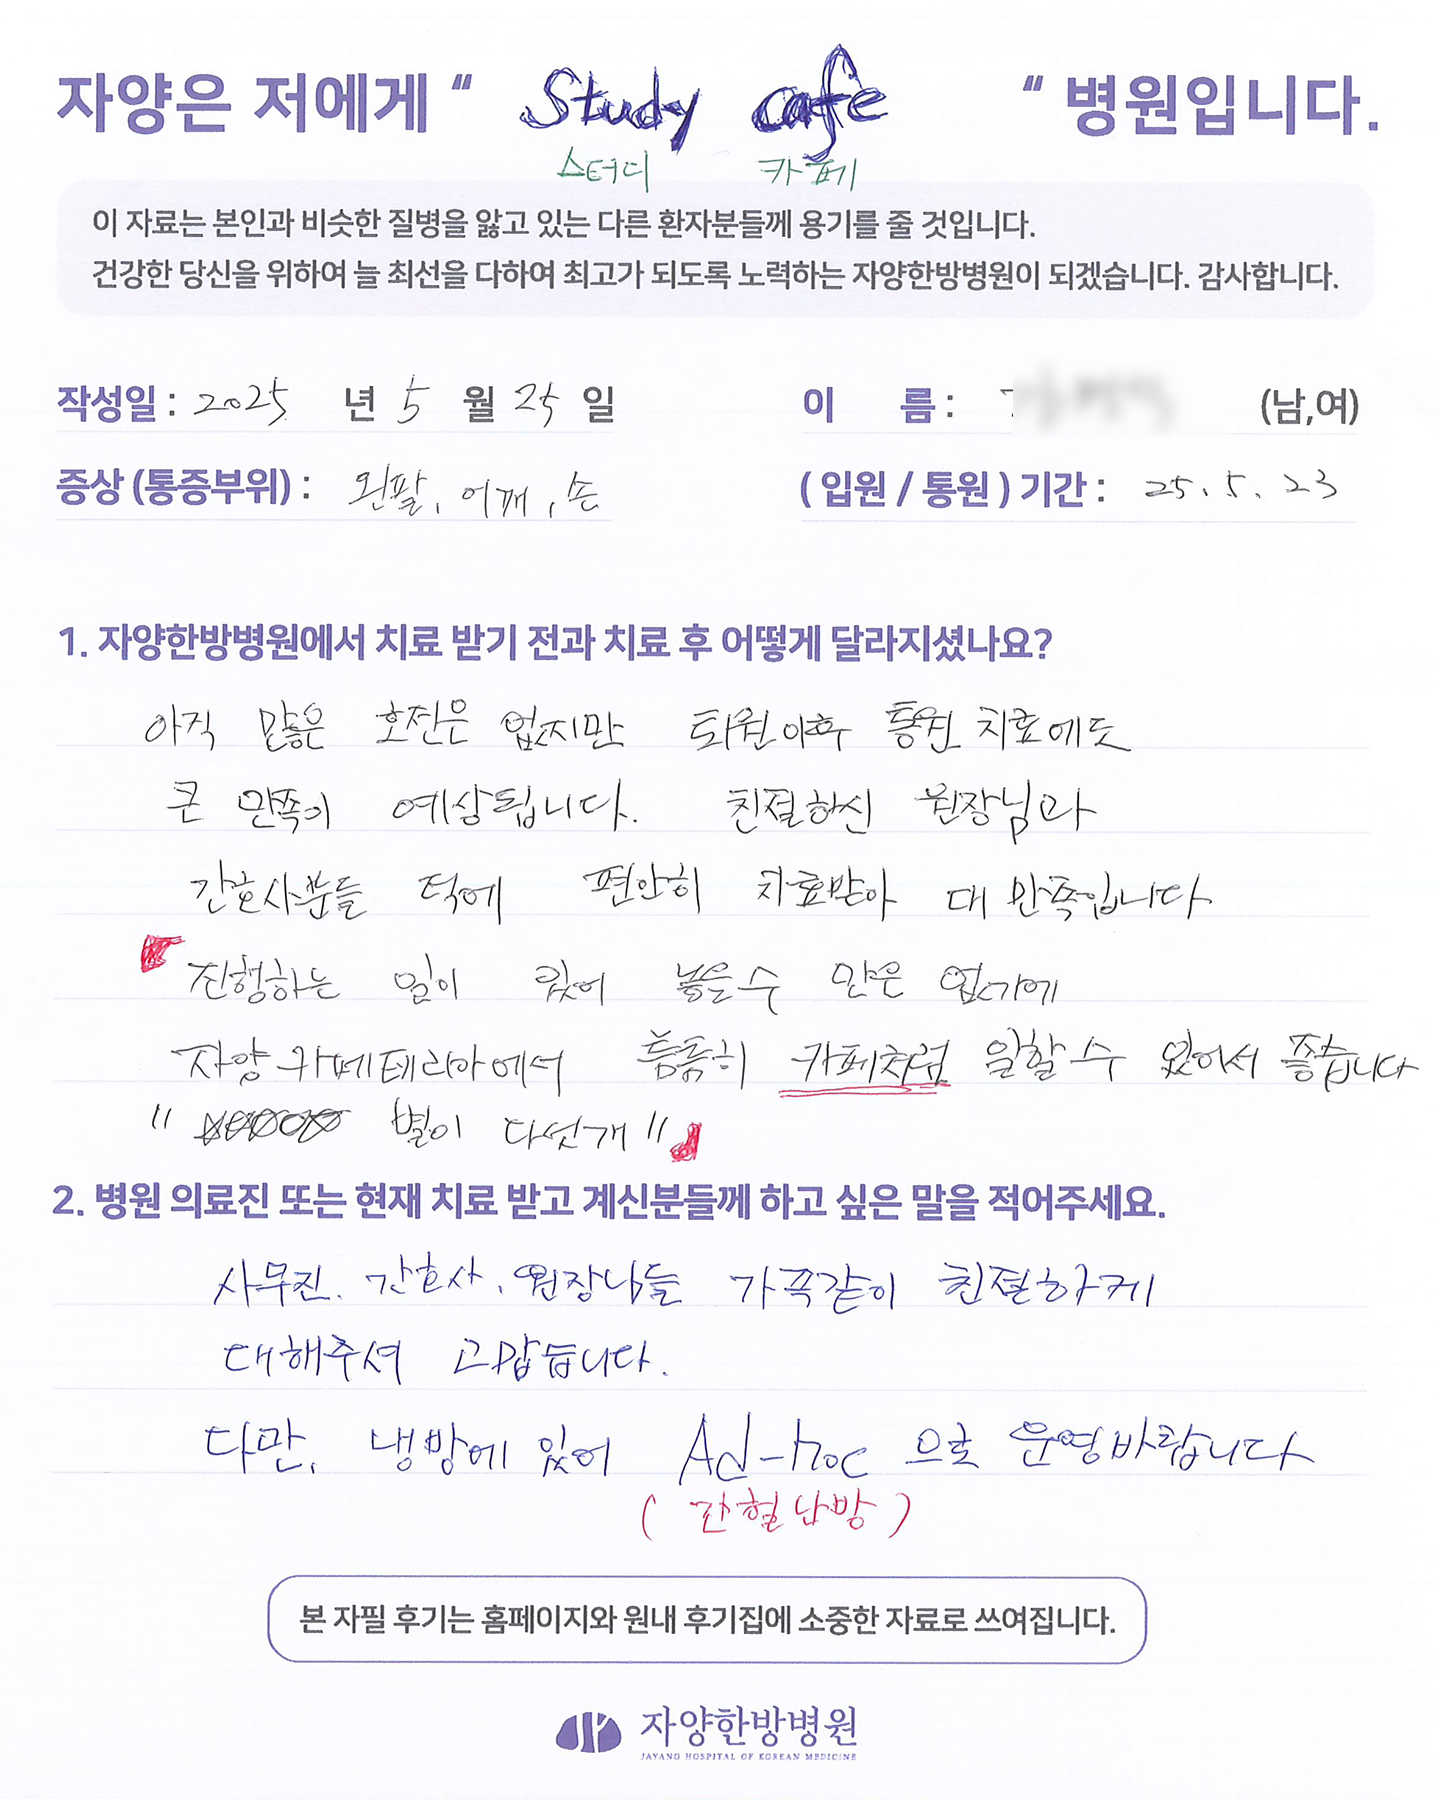 자양은 저에게 “ Study cafe “ 병원입니다.
스터디 카페
이 자료는 본인과 비슷한 질병을 앓고 있는 다른 환자분들께 용기를 줄 것입니다.
건강한 당신을 위하여 늘 최선을 다하여 최고가 되도록 노력하는 자양한방병원이 되겠습니다. 감사합니다.
작성일 : 2025 년 5 월 25 일
이 름 : (남,여)
증상 (통증부위) : 왼팔, 어깨, 손
( 입원 / 통원 ) 기간 : 25. 5. 23
1. 자양한방병원에서 치료 받기 전과 치료 후 어떻게 달라지셨나요?
아직 많은 호전은 없지만 퇴원이후 통원 치료에도
큰 만족이 예상됩니다. 친절하신 원장님과
간호사분들 덕에 편안히 치료받아 대 만족입니다
진행하는 일이 있어 놓을수 만은 없기에
자양 카페테리아에서 틈틈히 카페처럼 일할 수 있어서 좋습니다
" 별이 다섯개 "
2. 병원 의료진 또는 현재 치료 받고 계신분들께 하고 싶은 말을 적어주세요.
사무진, 간호사, 원장님들 가족같이 친절하게
대해주셔 고맙습니다.
다만, 냉방에 있어 Ad-hoc 으로 운영바랍니다
( 간헐 난방 )
본 자필 후기는 홈페이지와 원내 후기집에 소중한 자료로 쓰여집니다.
자양한방병원
JAYANG HOSPITAL OF KOREAN MEDICINE